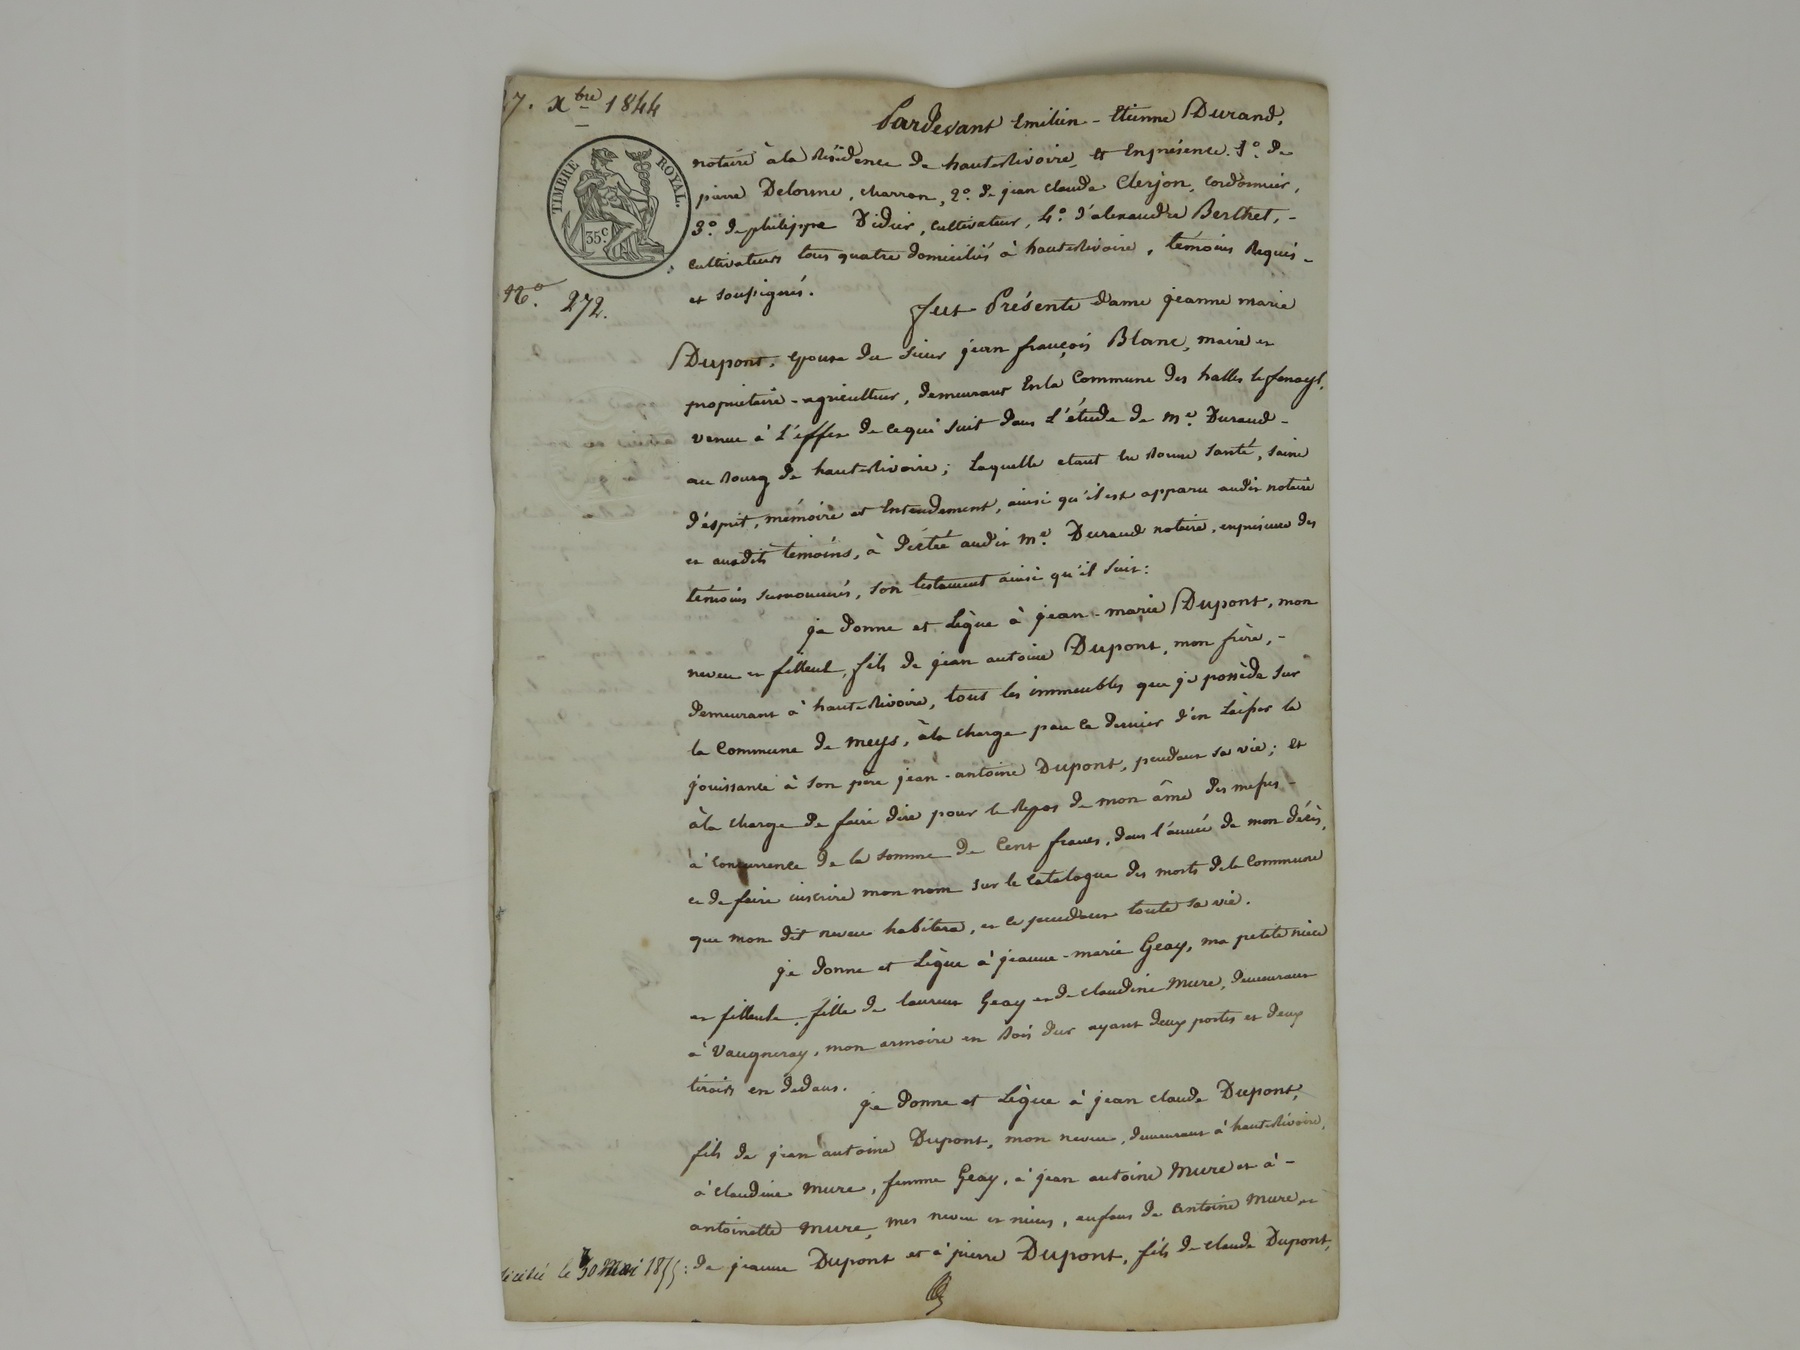 7. Xbre 1844
TIMBRE ROYAL.
35c
No. 272.
Pardevant Emilien - Etienne Durand,
notaire à la Résidence de hauterivoire, et En présence. 1o. de
pierre Delorme, charron, 2o. de jean claude Clerjon, cordonnier,
3o. de philippe Didier, cultivateur, 4o. d'alexandre Berthet, -
cultivateur tous quatre domiciliés à hauterivoire, témoins Requis -
et soussignés.
fut Présente dame jeanne marie
Dupont, épouse du sieur jean françois Blanc, maire et
propriétaire - agriculteur, demeurant En la Commune des halles le fenoyl,
venue à L'effet de ce qui suit dans L'étude de me. Durand -
au Bourg de hauterivoire; Laquelle etant En Bonne santé, saine
d'esprit, mémoire et Entendement, ainsi qu'il est apparu audit notaire
et auxdits témoins, à Dicté audit me. Durand notaire, en présence des
témoins susnommés, son testament ainsi qu'il suit:
je donne et Lègue à jean - marie Dupont, mon
neveu et filleul, fils de jean antoine Dupont, mon frère, -
demeurant à hauterivoire, tous les immeubles que je possède sur
la Commune de meys, à la charge par ce dernier d'en Laisser la
jouissance à son père jean - antoine Dupont, pendant sa vie; et
à la charge de faire dire pour le Repos de mon âme des messes -
à concurrence de la somme de Cent francs, dans l'année de mon décès,
et de faire inscrire mon nom sur le Catalogue des morts de la Commune
que mon dit neveu habitera, et ce pendant toute sa vie.
je donne et Lègue à jeanne - marie Geay, ma petite nièce
et filleule, fille de laurent Geay et de claudine Mure, demeurant
à Vaugneray, mon armoire en Bois dur ayant deux portes et deux
tiroirs en dedans.
je donne et Lègue à jean claude Dupont,
fils de jean antoine Dupont, mon neveu, demeurant à hauterivoire,
à claudine Mure, femme Geay, à jean antoine Mure et à -
antoinette Mure, mes neveu et nièces, enfans de antoine Mure, et
de jeanne Dupont et à pierre Dupont, fils de claude Dupont,
le 30 Mai 1855: